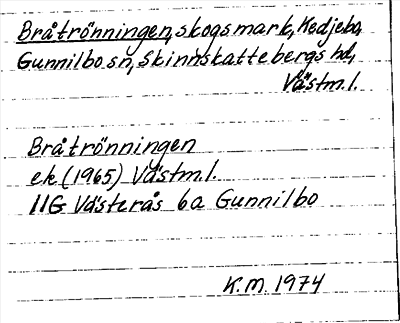 Bråtrönningen, skogsmark, Kedjebo,
Gunnilbo sn, Skinnskattebergs hd,
Västm.l.
Bråtrönningen
ek (1965) Västm.l.
11G Västerås 6a Gunnilbo
K.M. 1974